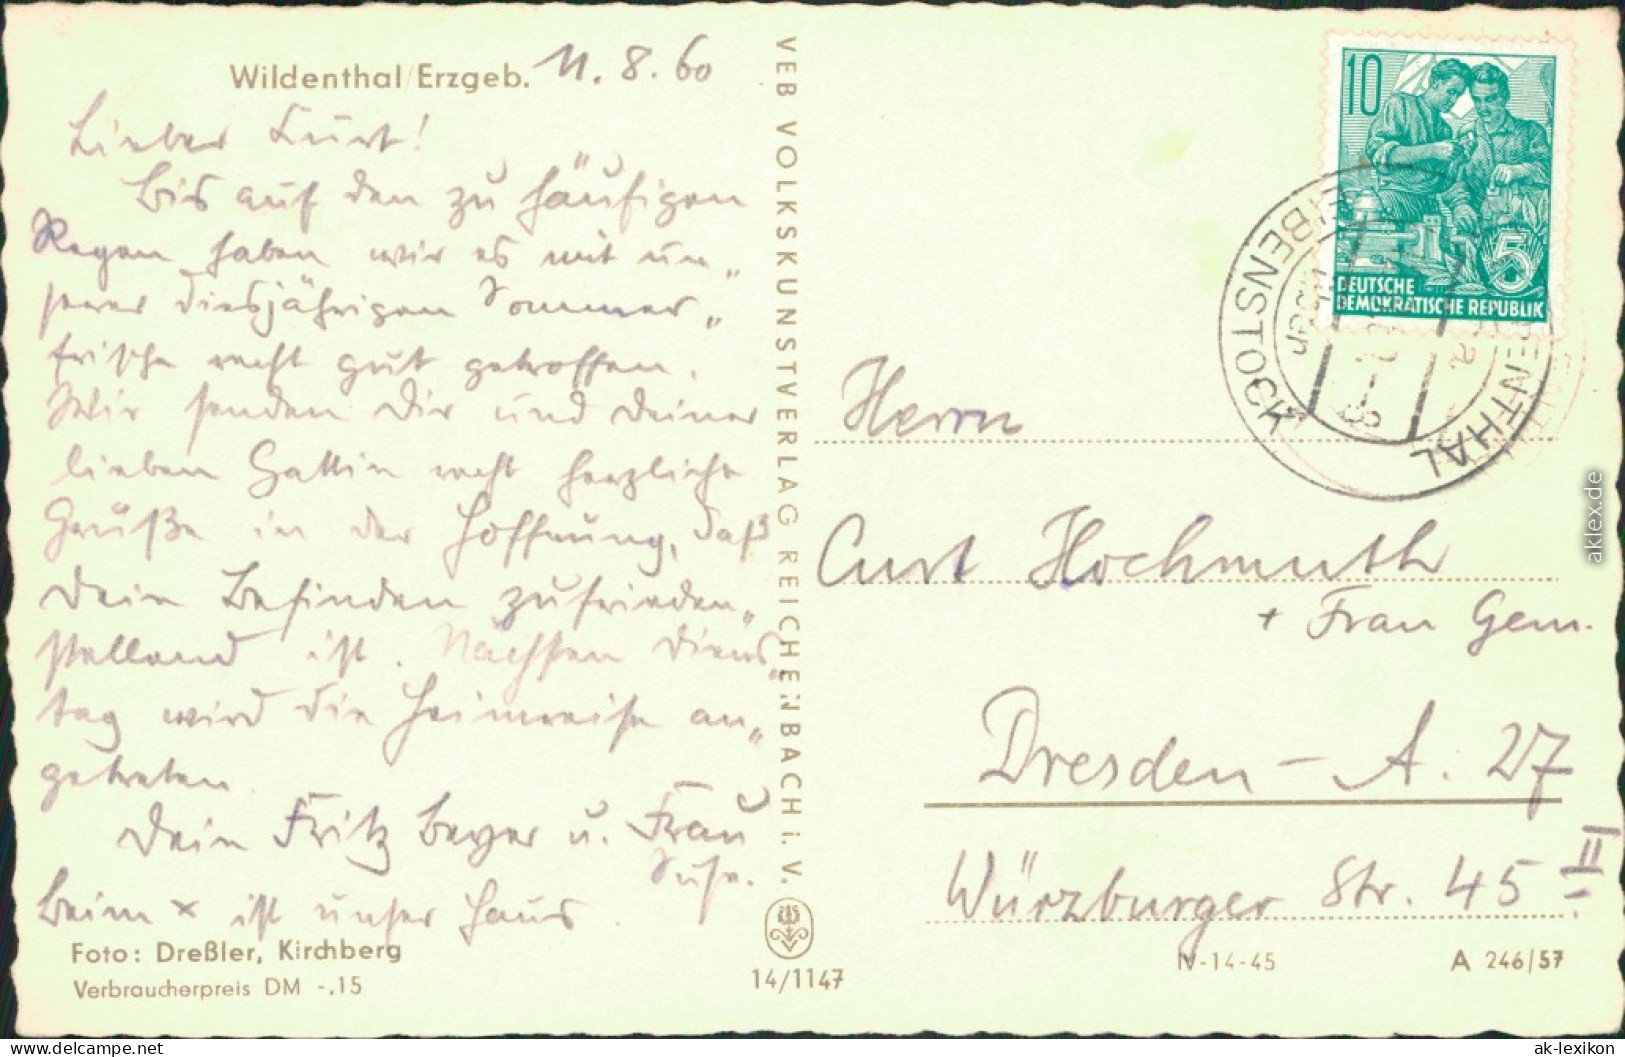 Wildenthal/Erzgeb. 11.8.60
Lieber Kurt!
Bis auf den zu häufigen
Regen haben wir es mit un„
serer diesjährigen Sommer„
frische recht gut getroffen.
Wir senden Dir und Deiner
lieben Gattin recht herzliche
Grüße in der Hoffnung, daß
Dein Befinden zufrieden„
stellend ist. Nächsten Diens„
tag wird die Heimreise an„
getreten.
Dein Fritz Beyer u. Frau
Suse.
Beim x ist unser Haus.
Foto: Dreßler, Kirchberg
Verbraucherpreis DM -,15
VEB VOLKSKUNSTVERLAG REICHENBACH i. V.
14/1147
10
5
DEUTSCHE
DEMOKRATISCHE REPUBLIK
EIBENSTOCK
WILDENTHAL
Herrn
Curt Hochmuth
+ Frau Gem.
Dresden - A. 27
Würzburger Str. 45 II
IV-14-45
A 246/57
aklex.de
www.delcampe.net
ak-lexikon